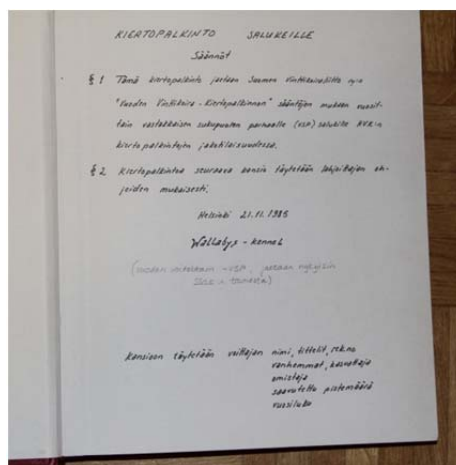 KIERTOPALKINTO SALUKEILLE
Säännöt
§ 1 Tämä kiertopalkinto jaetaan Suomen Vinttikoiraliitto ry:n
"Vuoden Vinttikoira - Kiertopalkinnon" sääntöjen mukaan vuosit-
tain vastakkaisen sukupuolen parhaalle (VSP) salukille KVR:n
kiertopalkintojen jakotilaisuudessa.
§ 2 Kiertopalkintoa seuraava kansio täytetään lahjoittajan oh-
jeiden mukaisesti.
Helsinki 21.11.1985
Wallabys - kennel
(vuoden -VSP, jaetaan nykyisin
Kansioon täytetään voittajan nimi, tittelit, rek.no
vanhemmat, kasvattaja
omistaja
saavutettu pistemäärä
vuosiluku